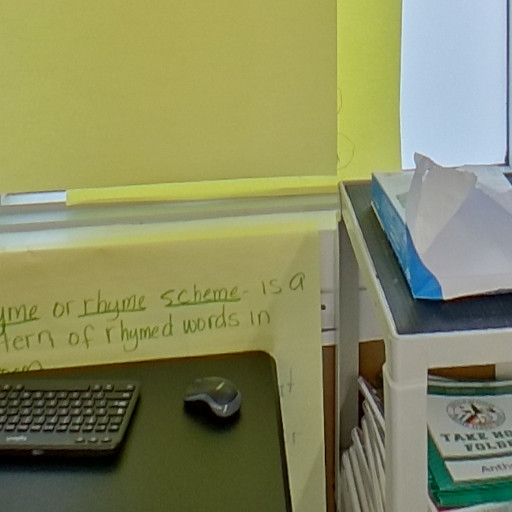 yme or rhyme scheme- is a
tern of rhymed words in
TAKE HO
FOLDE
Anth